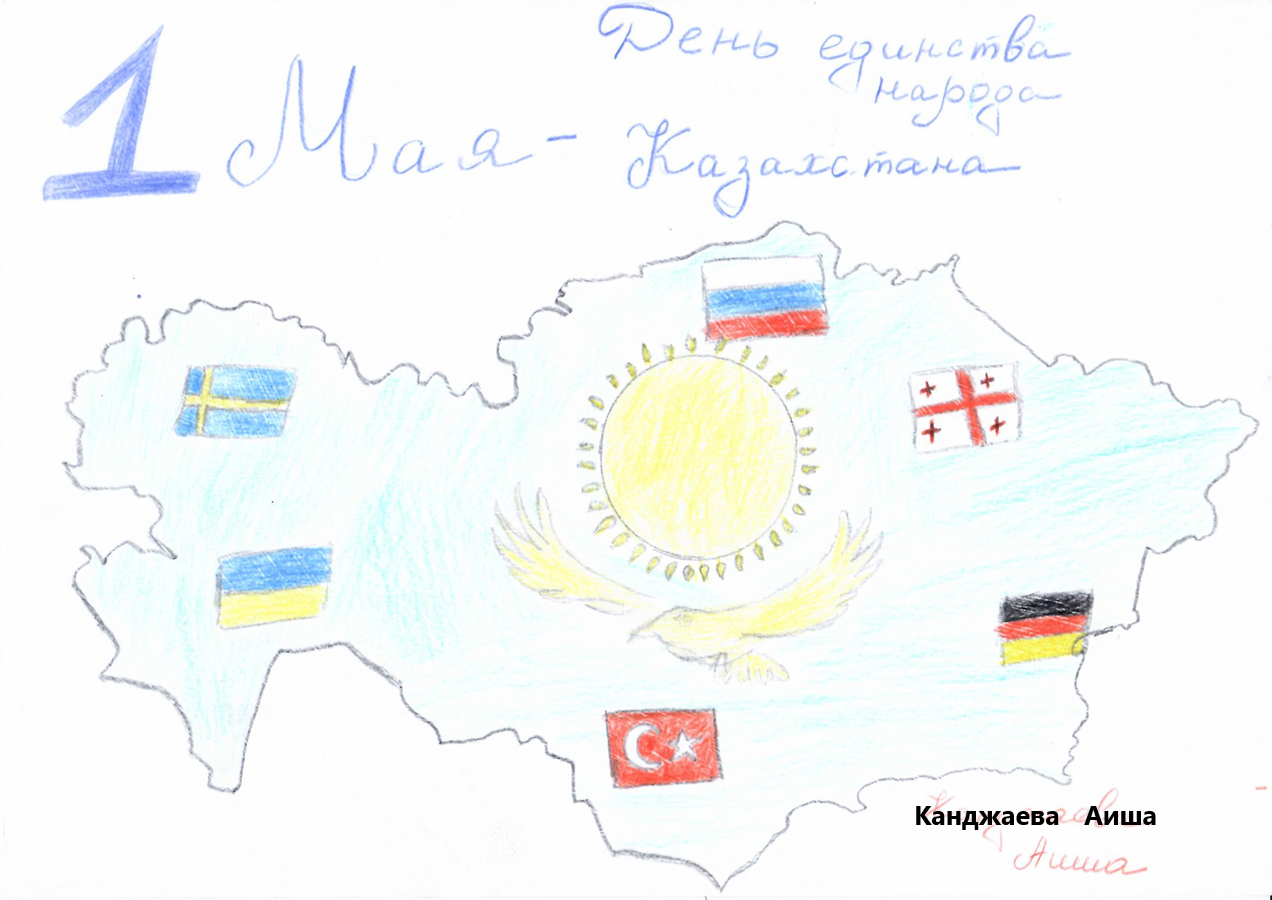 1 Мая - День единства
народа
Казахстана
Канджаева Аиша
Аиша